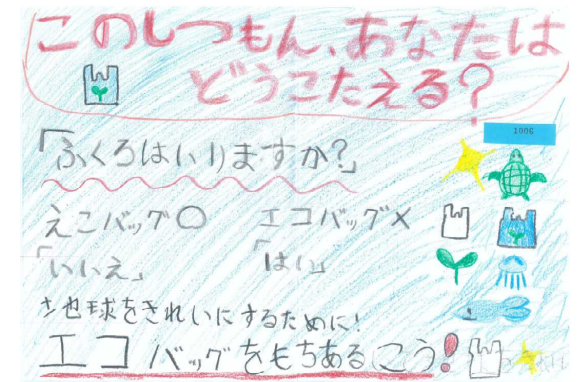 このしつもん、あなたは
どうこたえる?
1006
「ふくろはいりますか?」
えこバッグ○ エコバッグ×
「いいえ」 「はい」
地球をきれいにするために!
エコバッグをもちあるこう!